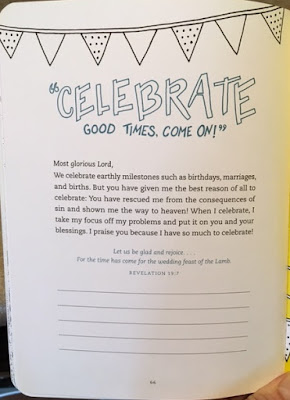 "CELEBRATE
GOOD TIMES, COME ON!"
Most glorious Lord,
We celebrate earthly milestones such as birthdays, marriages,
and births. But you have given me the best reason of all to
celebrate: You have rescued me from the consequences of
sin and shown me the way to heaven! When I celebrate, I
take my focus off my problems and put it on you and your
blessings. I praise you because I have so much to celebrate!
Let us be glad and rejoice. . . .
For the time has come for the wedding feast of the Lamb.
REVELATION 19:7
66